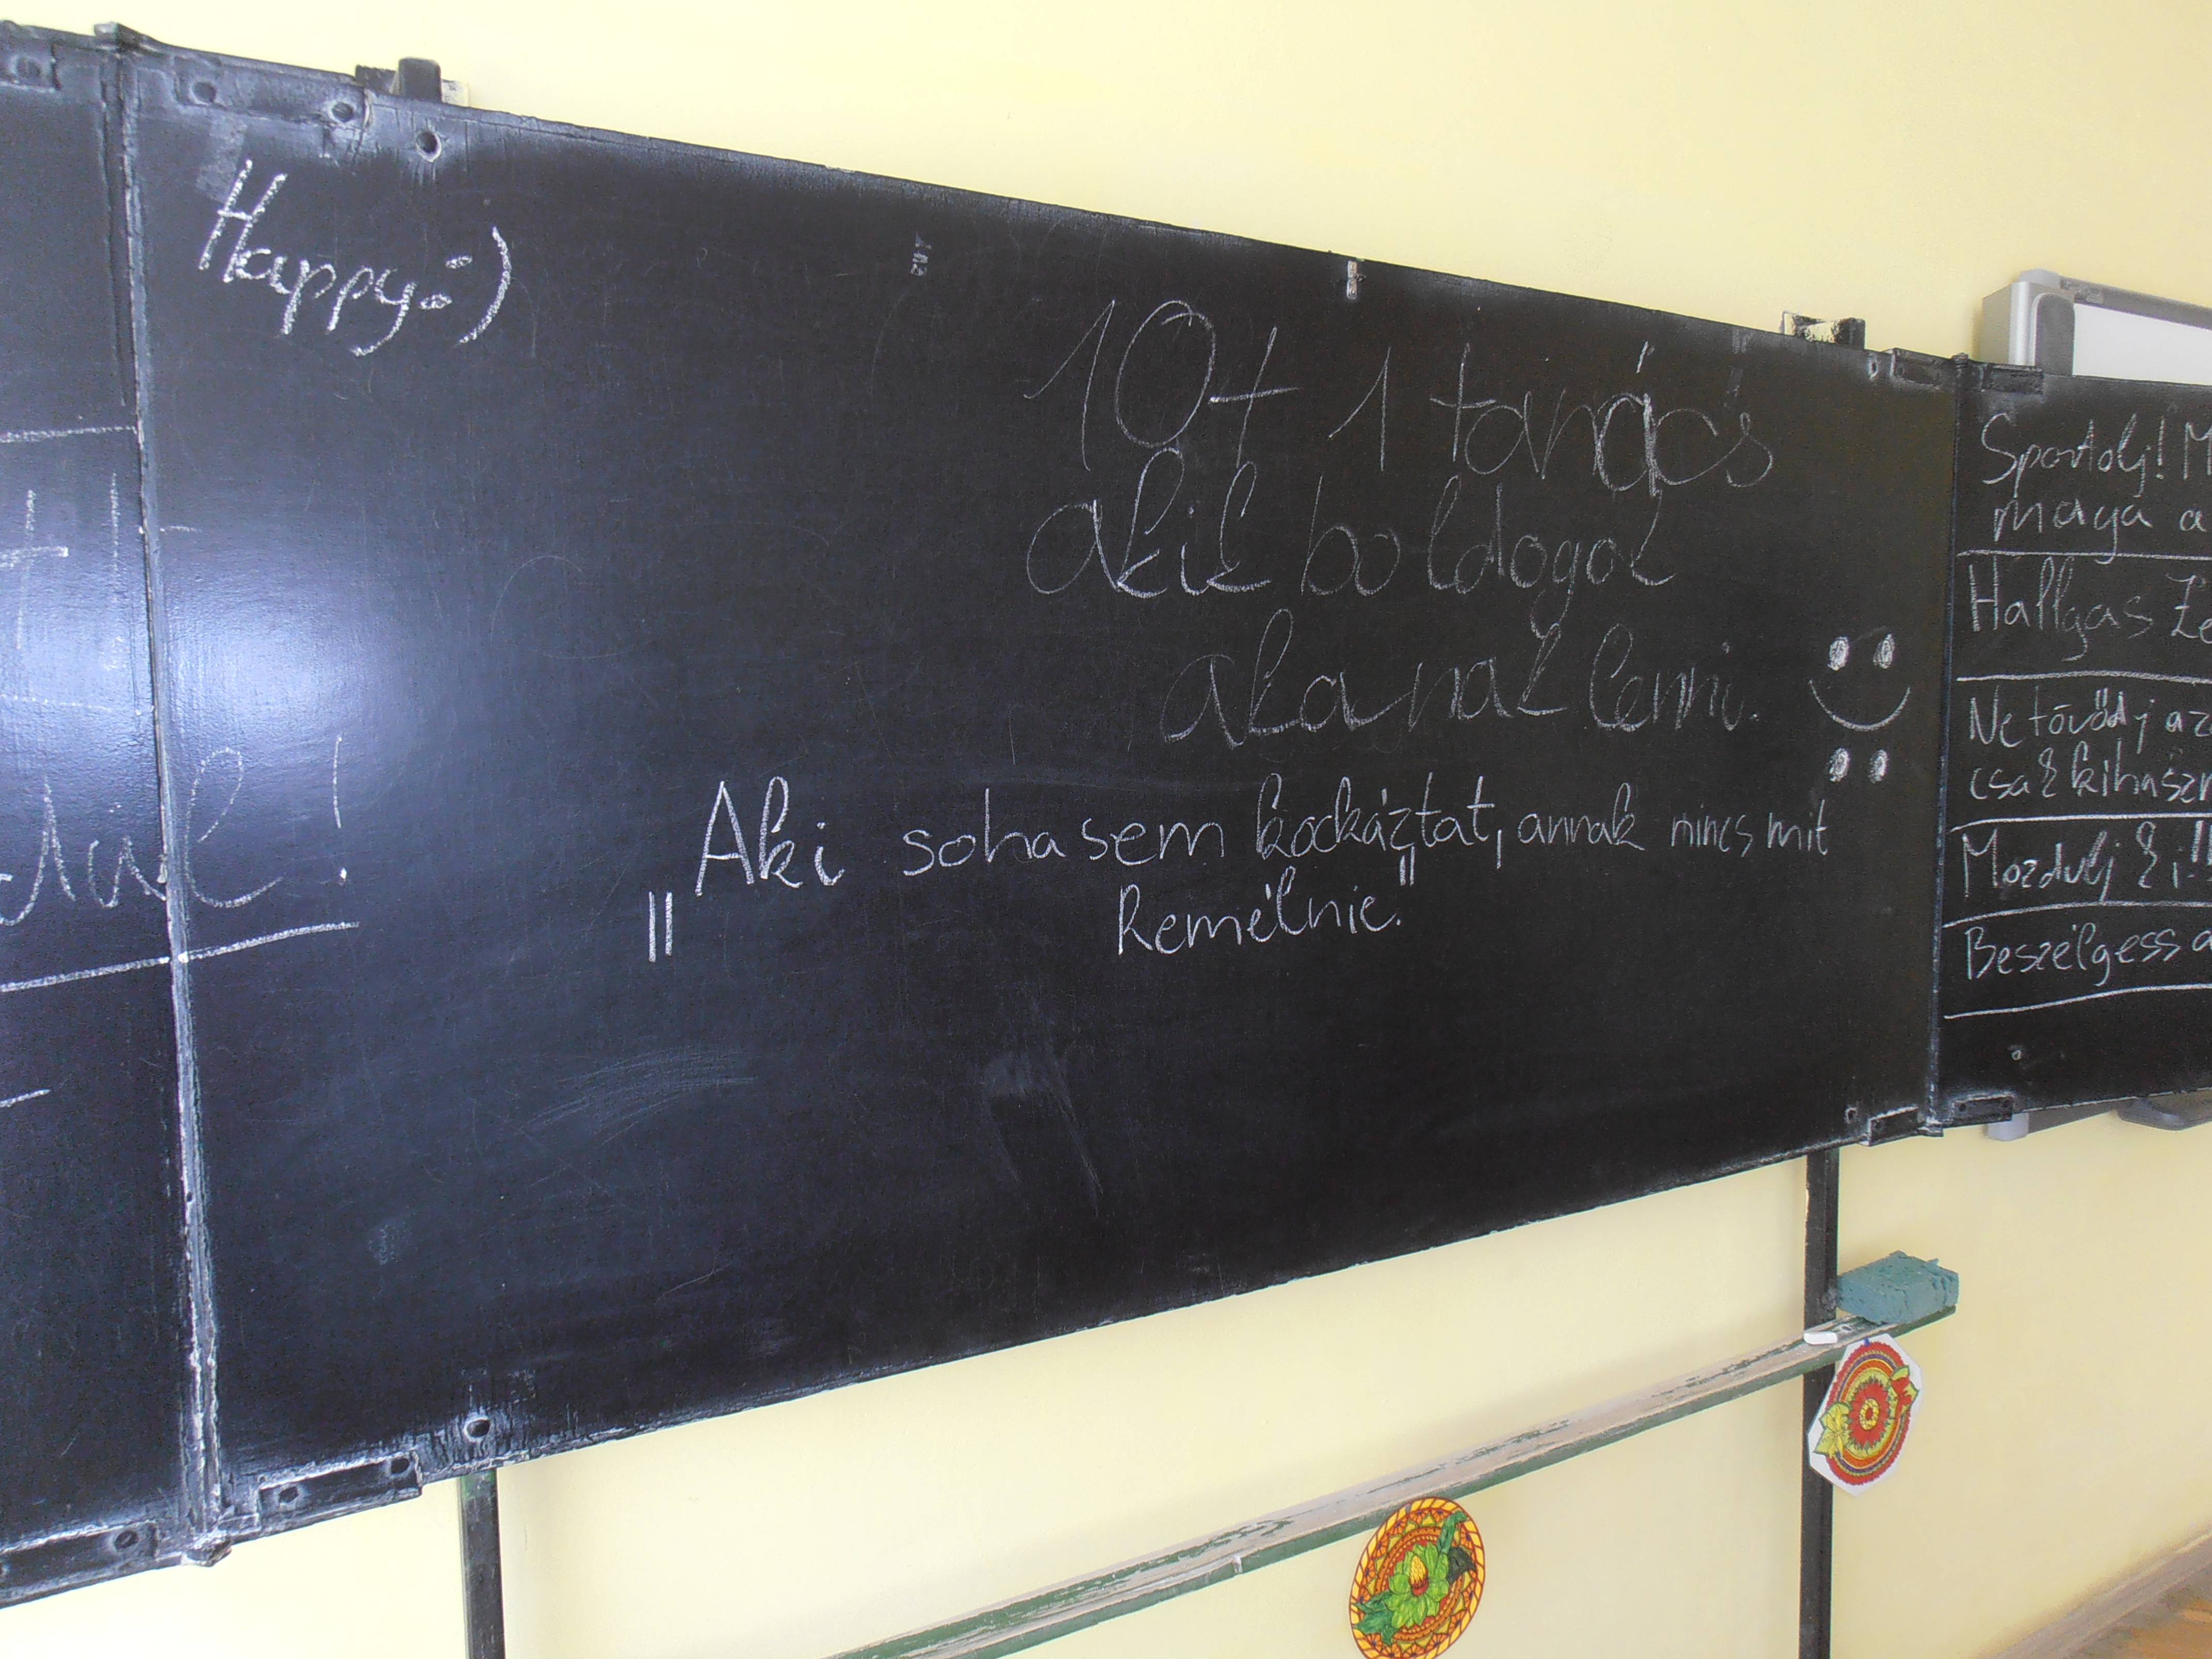 Happy :)
10+1 tanács
akik boldogok
akarnak lenni.
„Aki sohasem kockáztat, annak nincs mit
Remélnie."
Sportolj! M
maga a
Hallgas Ze
Ne tövődj az
csak kihaszn
Mozdulj ki!!
Beszélgess a